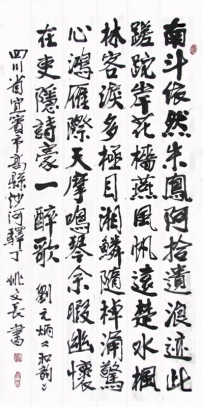 南斗依然朱鳳阿拾遺浪迹此
蹉跎岸花檣燕風帆遠楚水楓
林客淚多極目湘鱗隨棹涌驚
心鴻雁際天摩鳴琴余暇幽懷
在吏隱詩豪一醉歌 劉元炳之和韵
四川省宜賓市高縣沙河驛丁 姚文長書